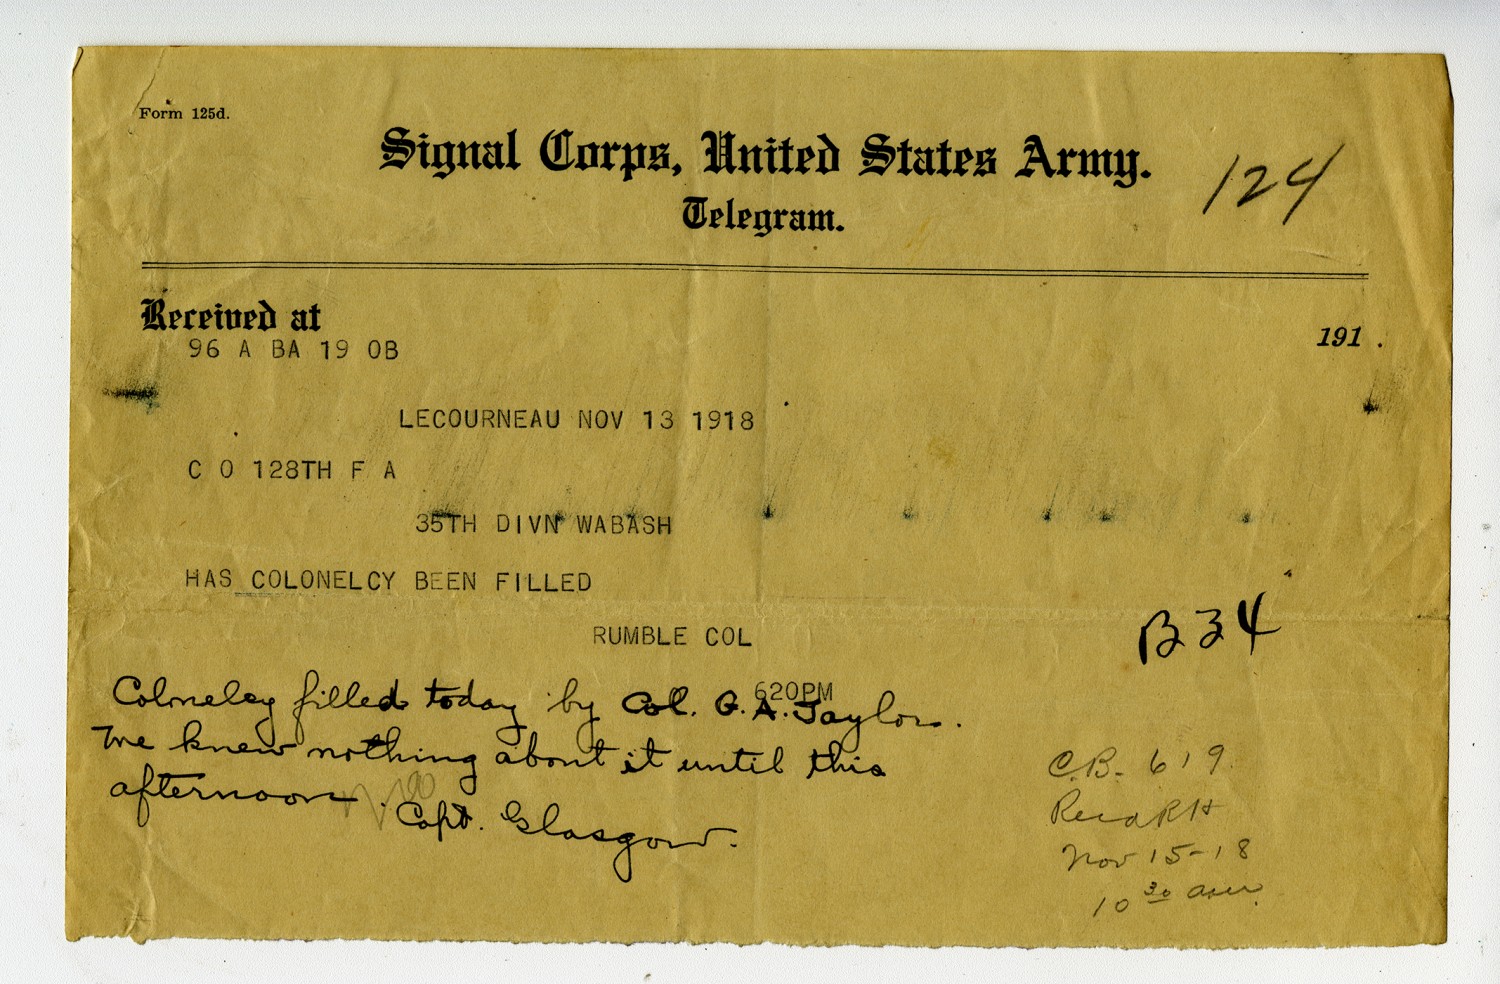 Form 125d.
Signal Corps, United States Army.
124
Telegram.
Received at
191 .
96 A BA 19 OB
LECOURNEAU NOV 13 1918
C O 128TH F A
35TH DIVN WABASH
HAS COLONELCY BEEN FILLED
RUMBLE COL
B 34
620PM
Colonelcy filled today by Col. G. A. Taylor.
We knew nothing about it until this
afternoon. Capt. Glasgow.
C.B. 619
Recd RH
Nov 15-18
10 30 am